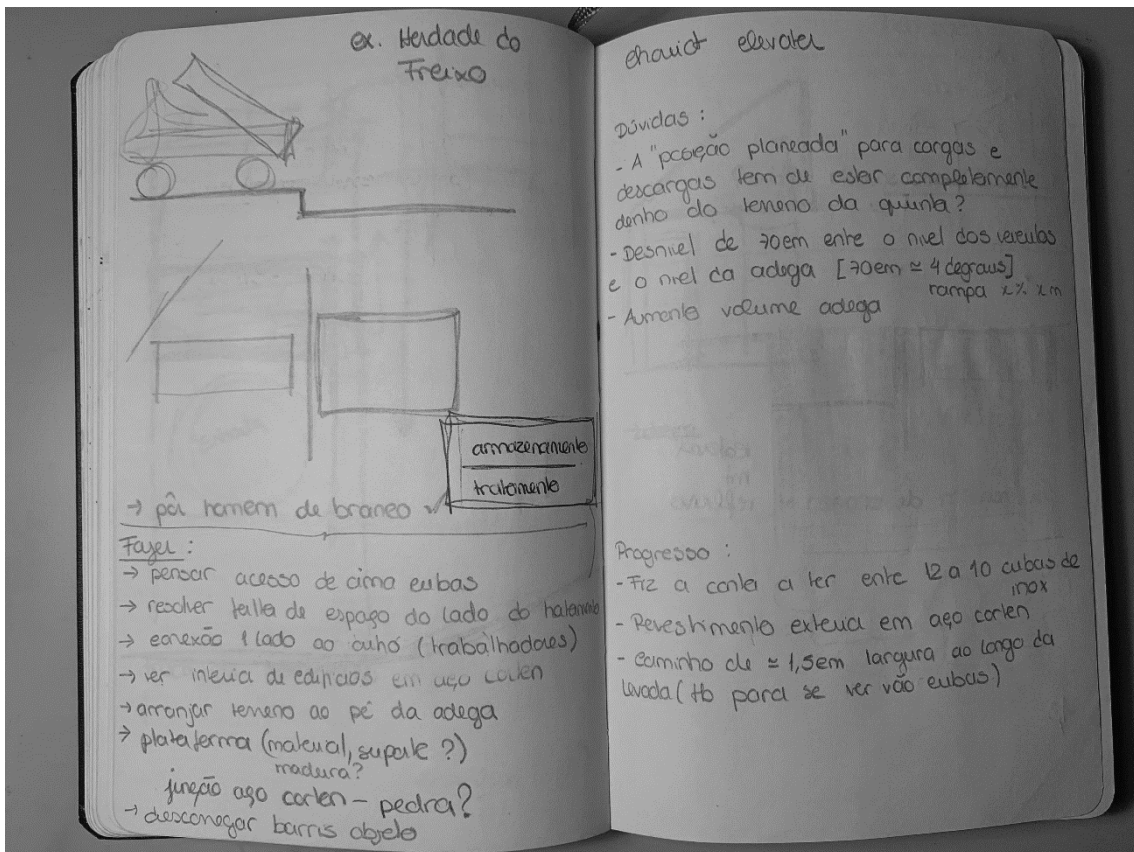 ex. Herdade do
Freixo
armazenamento
tratamento
→ pôr homem de branco ✓
Fazer :
→ pensar acesso de cima cubas
→ resolver falta de espaço do lado do tratamento
→ conexão 1 lado ao outro (trabalhadores)
→ ver interior de edifícios em aço corten
→ arranjar terreno ao pé da adega
→ plataforma (material, suporte ?)
madeira?
junção aço corten - pedra?
→ descarregar barris objeto
chariot elevater
Dúvidas :
- A "posição planeada" para cargas e
descargas tem de estar completamente
dentro do terreno da quinta?
- Desnível de 70cm entre o nível dos veículos
e o nível da adega [70cm ≃ 4 degraus]
rampa x% xm
- Aumento volume adega
Progresso :
- Fiz a conta a ter entre 12 a 10 cubas de
inox
- Revestimento exterior em aço corten
- Caminho de ≃ 1,5cm largura ao longo da
levada (tb para se ver vão cubas)